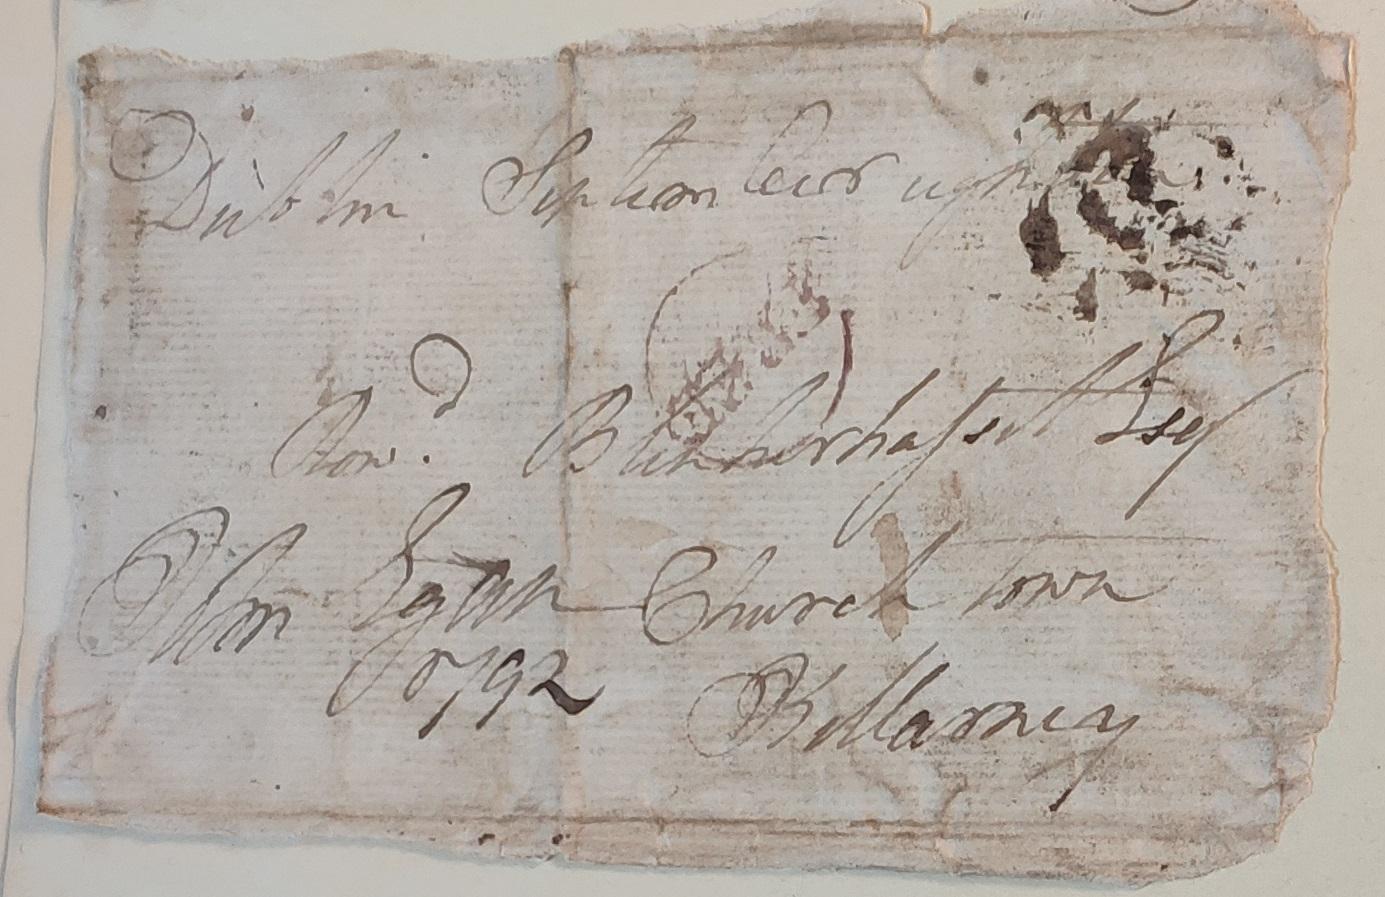 Dublin September eighteen
Row.d Blennerhassett Esqr
John Egan Church town
1792 Killarney